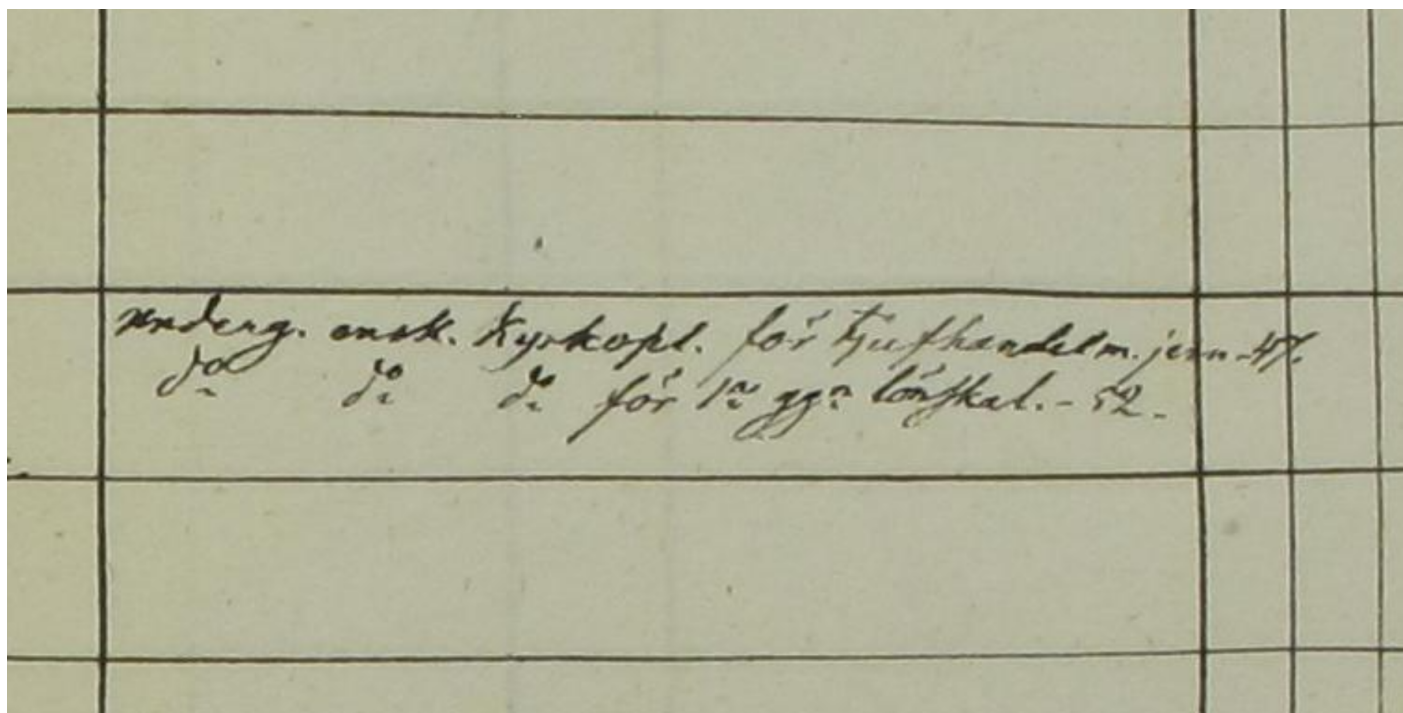 underg. ensk. Kyrkopl. för tjufhandel m. jern -47.
do do do för 1a ggn lönskal. - 52.